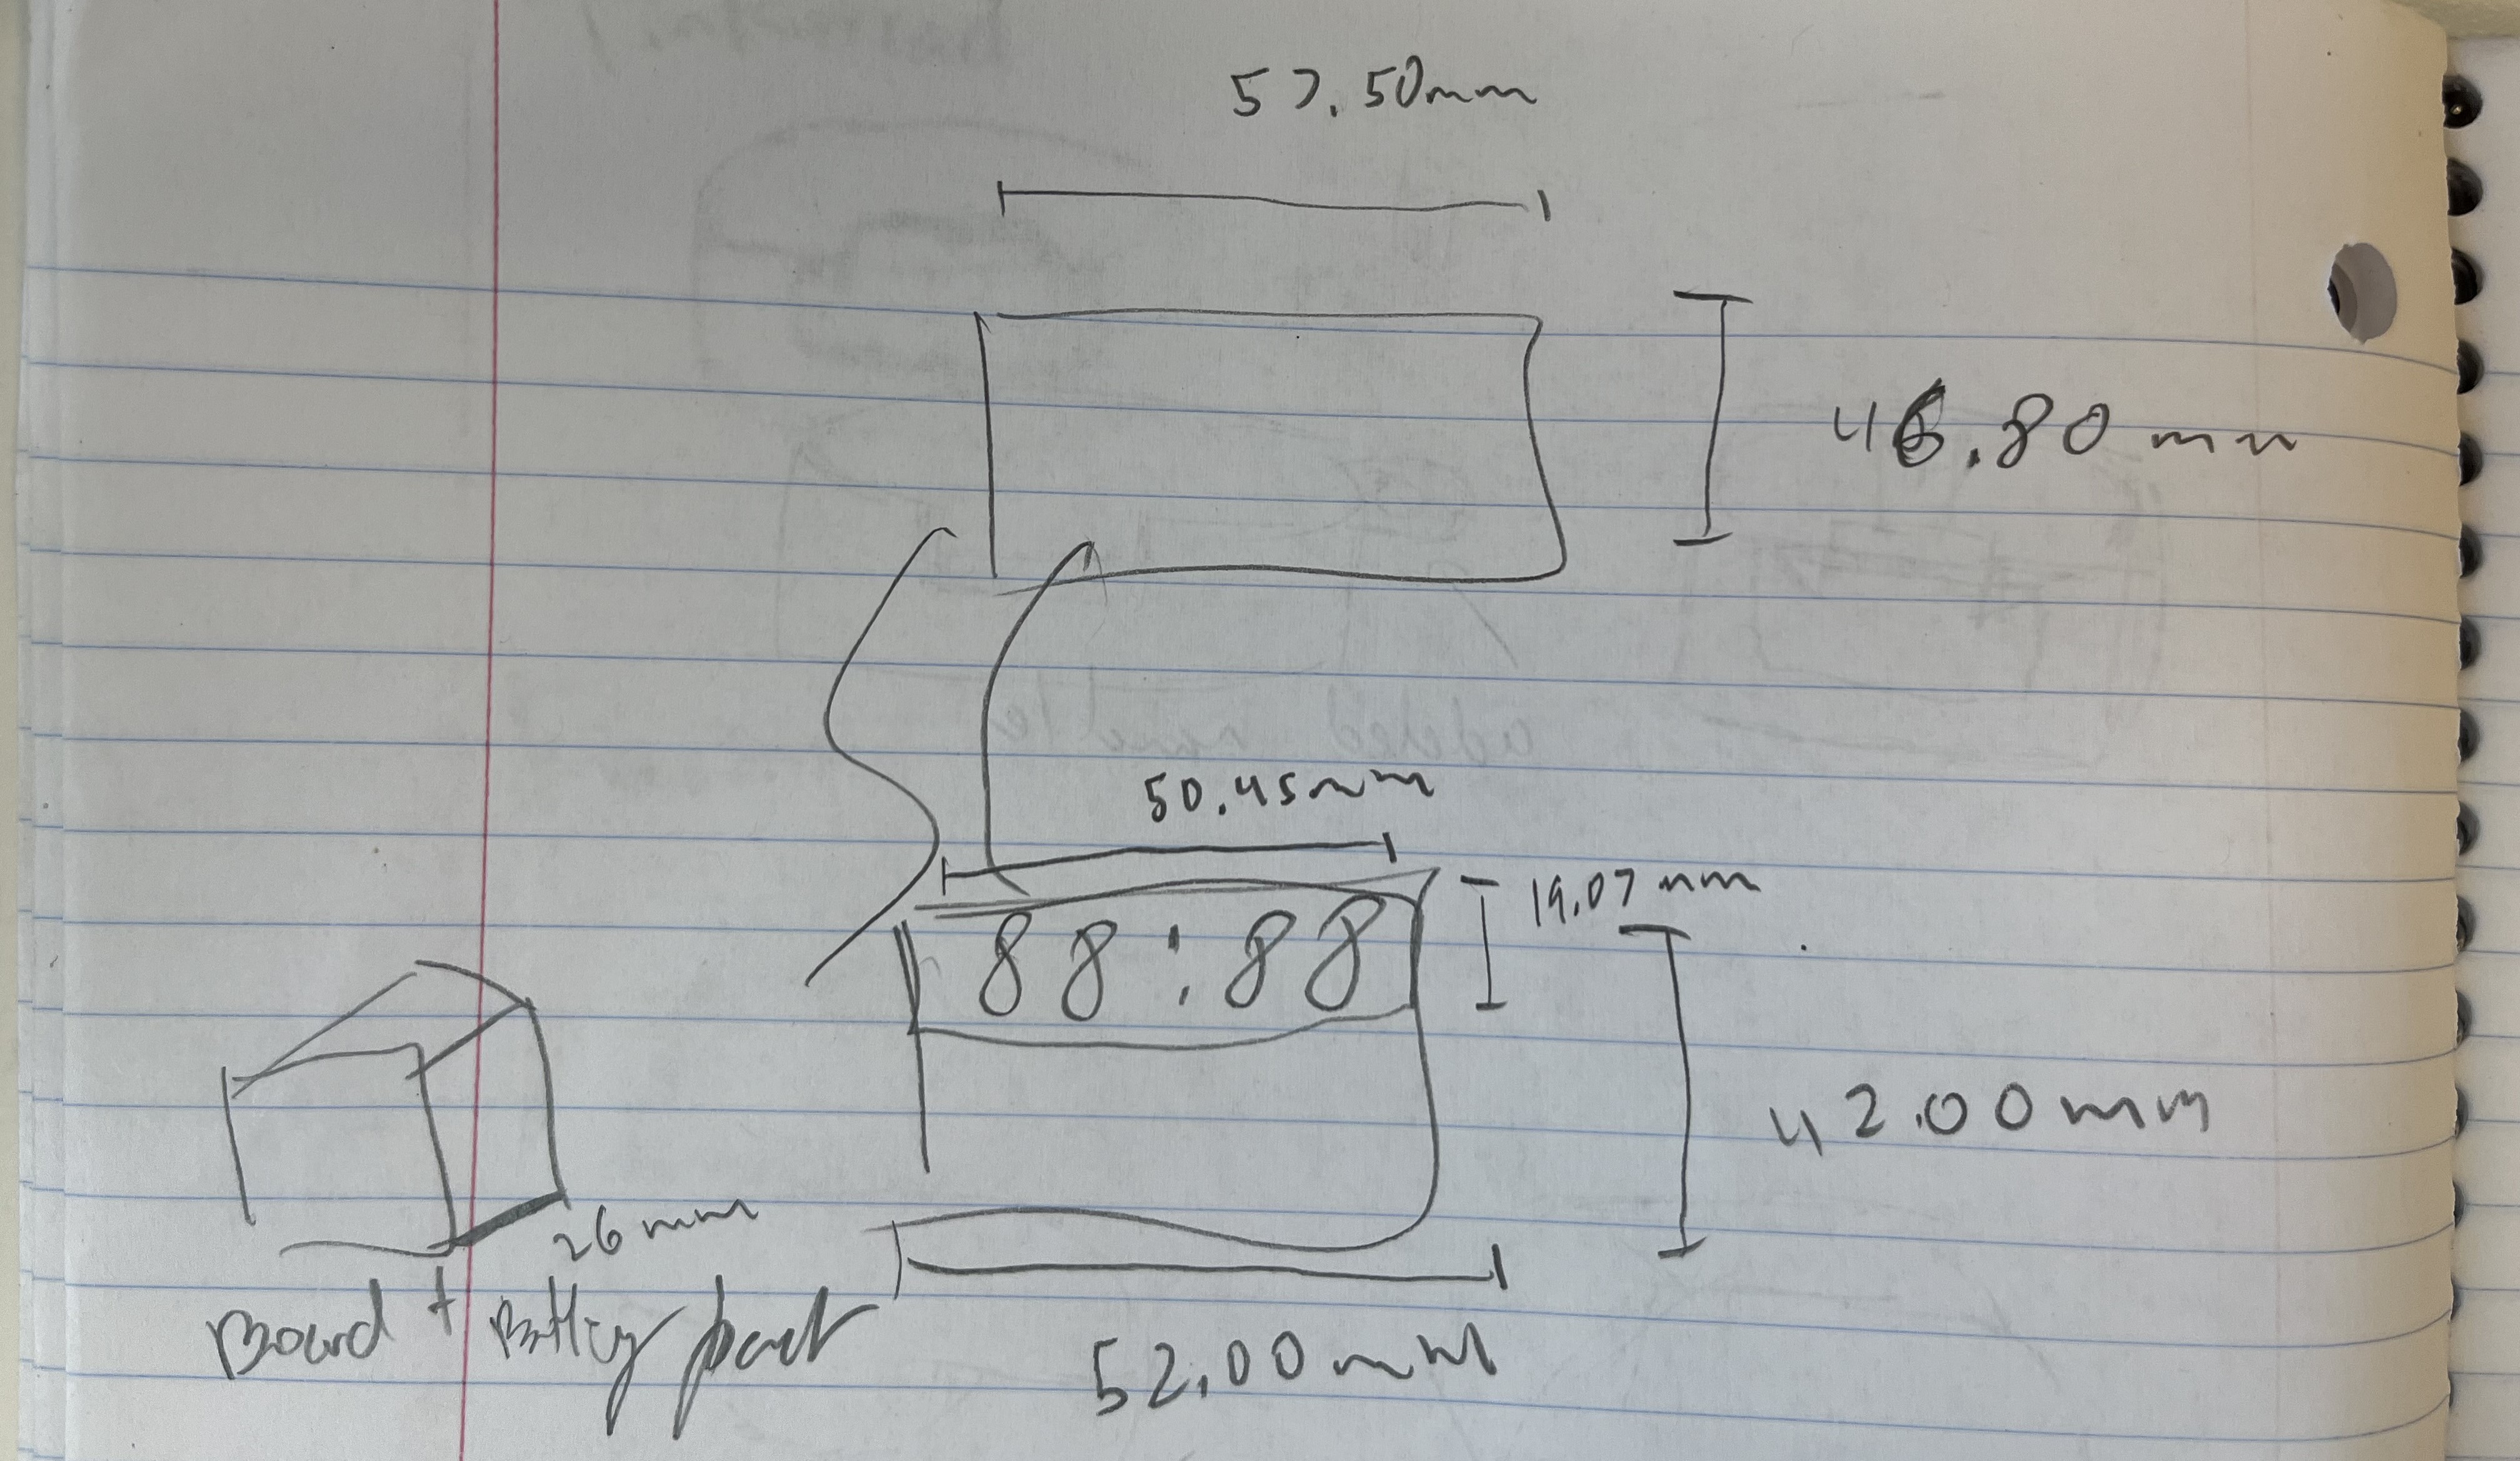 57.50mm
46.80mm
50.45mm
19.07mm
88:88
42.00mm
26mm
Board + Battery part
52.00mm